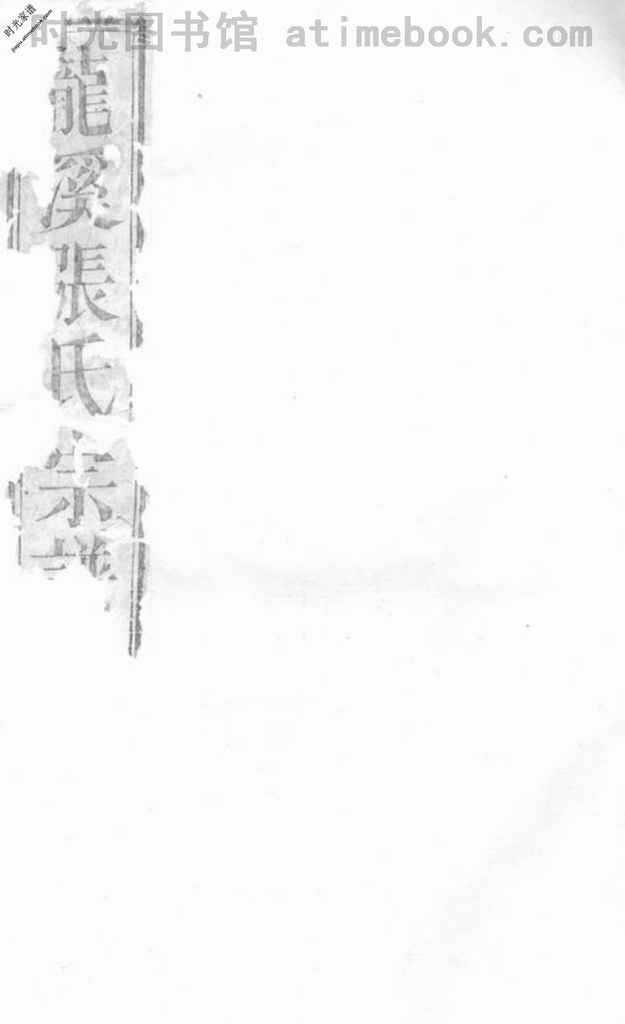 时光图书馆 atimebook.com
时光家谱
龍溪張氏宗